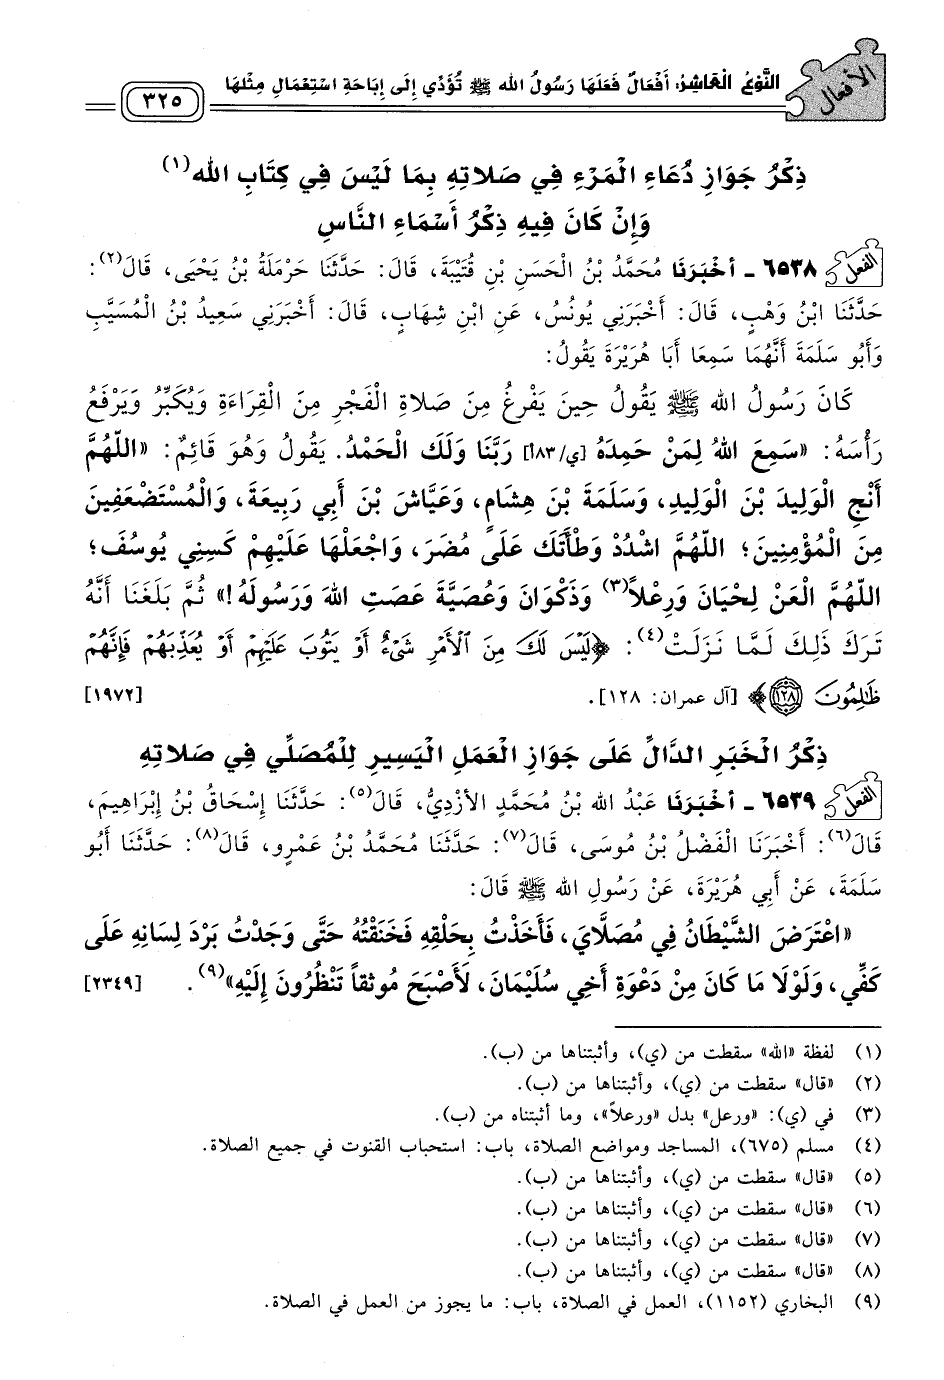 الأفعال
النَّوْعُ الْعَاشِرُ: أَفْعَالٌ فَعَلَهَا رَسُولُ الله ﷺ تُؤَدِّي إِلَى إِبَاحَةِ اسْتِعْمَالِ مِثْلِهَا
٣٢٥
ذِكْرُ جَوَازِ دُعَاءِ الْمَرْءِ فِي صَلَاتِهِ بِمَا لَيْسَ فِي كِتَابِ الله(١)
وَإِنْ كَانَ فِيهِ ذِكْرُ أَسْمَاءِ النَّاسِ
الفعل ٦٥٣٨ - أَخْبَرَنَا مُحَمَّدُ بْنُ الْحَسَنِ بْنِ قُتَيْبَةَ، قَالَ: حَدَّثَنَا حَرْمَلَةُ بْنُ يَحْيَى، قَالَ(٢):
حَدَّثَنَا ابْنُ وَهْبٍ، قَالَ: أَخْبَرَنِي يُونُسُ، عَنِ ابْنِ شِهَابٍ، قَالَ: أَخْبَرَنِي سَعِيدُ بْنُ الْمُسَيَّبِ
وَأَبُو سَلَمَةَ أَنَّهُمَا سَمِعَا أَبَا هُرَيْرَةَ يَقُولُ:
كَانَ رَسُولُ الله ﷺ يَقُولُ حِينَ يَفْرغُ مِنَ صَلاةِ الْفَجْرِ مِنَ الْقِرَاءَةِ وَيُكَبِّرُ وَيَرْفَعُ
رَأْسَهُ: «سَمِعَ اللهُ لِمَنْ حَمِدَهُ [ي/١٨٣أ] رَبَّنَا وَلَكَ الْحَمْدُ. يَقُولُ وَهُوَ قَائِمٌ: «اللّهُمَّ
أَنْجِ الْوَلِيدَ بْنَ الْوَلِيدِ، وَسَلَمَةَ بْنَ هِشَامٍ، وَعَيَّاشَ بْنَ أَبِي رَبِيعَةَ، وَالْمُسْتَضْعَفِينَ
مِنَ الْمُؤْمِنِينَ؛ اللّهُمَّ اشْدُدْ وَطْأَتَكَ عَلَى مُضَرَ، وَاجْعَلْهَا عَلَيْهِمْ كَسِنِي يُوسُفَ؛
اللّهُمَّ الْعَنْ لِحْيَانَ وَرِعْلاً(٣) وَذَكْوَانَ وَعُصَيَّةَ عَصَتِ اللهَ وَرَسُولَهُ!» ثُمَّ بَلَغَنَا أَنَّهُ
تَرَكَ ذَلِكَ لَمَّا نَزَلَتْ(٤): ﴿لَيْسَ لَكَ مِنَ ٱلْأَمْرِ شَىْءٌ أَوْ يَتُوبَ عَلَيْهِمْ أَوْ يُعَذِّبَهُمْ فَإِنَّهُمْ
ظَٰلِمُونَ ١٢٨﴾ [آل عمران: ١٢٨]. [١٩٧٢]
ذِكْرُ الْخَبَرِ الدَّالِّ عَلَى جَوَازِ الْعَمَلِ الْيَسِيرِ لِلْمُصَلِّي فِي صَلَاتِهِ
الفعل ٦٥٣٩ - أَخْبَرَنَا عَبْدُ الله بْنُ مُحَمَّدٍ الأَزْدِيُّ، قَالَ(٥): حَدَّثَنَا إِسْحَاقُ بْنُ إِبْرَاهِيمَ،
قَالَ(٦): أَخْبَرَنَا الْفَضْلُ بْنُ مُوسَى، قَالَ(٧): حَدَّثَنَا مُحَمَّدُ بْنُ عَمْرٍو، قَالَ(٨): حَدَّثَنَا أَبُو
سَلَمَةَ، عَنْ أَبِي هُرَيْرَةَ، عَنْ رَسُولِ الله ﷺ قَالَ:
«اعْتَرَضَ الشَّيْطَانُ فِي مُصَلَّايَ، فَأَخَذْتُ بِحَلْقِهِ فَخَنَقْتُهُ حَتَّى وَجَدْتُ بَرْدَ لِسَانِهِ عَلَى
كَفِّي، وَلَوْلَا مَا كَانَ مِنْ دَعْوَةِ أَخِي سُلَيْمَانَ، لَأَصْبَحَ مُوثَقاً تَنْظُرُونَ إِلَيْهِ»(٩). [٢٣٤٩]
(١) لفظة «الله» سقطت من (ي)، وأثبتناها من (ب).
(٢) «قال» سقطت من (ي)، وأثبتناها من (ب).
(٣) في (ي): «ورعل» بدل «ورعلاً»، وما أثبتناه من (ب).
(٤) مسلم (٦٧٥)، المساجد ومواضع الصلاة، باب: استحباب القنوت في جميع الصلاة.
(٥) «قال» سقطت من (ي)، وأثبتناها من (ب).
(٦) «قال» سقطت من (ي)، وأثبتناها من (ب).
(٧) «قال» سقطت من (ي)، وأثبتناها من (ب).
(٨) «قال» سقطت من (ي)، وأثبتناها من (ب).
(٩) البخاري (١١٥٢)، العمل في الصلاة، باب: ما يجوز من العمل في الصلاة.